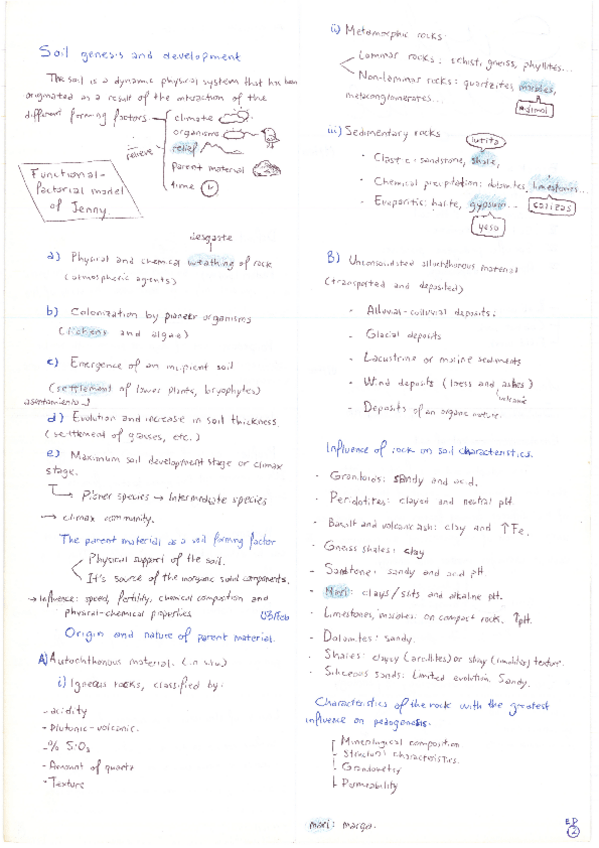 Soil genesis and development
The soil is a dynamic physical system that has been
originated as a result of the interaction of the
different forming factors
climate
organisms
relief
relieve
parent material
time
Functional-
factorial model
of Jenny
desgaste
a) Physical and chemical weathing of rock
(atmospheric agents)
b) Colonization by pioneer organisms
(lichens and algae)
c) Emergence of an incipient soil
(settlement of lower plants, bryophytes)
asentamiento
d) Evolution and increase in soil thickness
(settlement of grasses, etc.)
e) Maximum soil development stage or climax
stage.
Pioner species → Intermediate species
→ climax community.
The parent material as a soil forming factor
Physical support of the soil.
It's source of the inorganic solid components.
→ Influence: speed, fertility, chemical composition and
physical-chemical properties
03/Feb
Origin and nature of parent material.
A) Autochthonous material. (in situ)
i) Igneous rocks, classified by:
- acidity
- Plutonic-volcanic.
- % SiO2
- Amount of quartz
- Texture
ii) Metamorphic rocks:
Laminar rocks: schist, gneiss, phyllites...
Non-laminar rocks: quartzites, marbles,
metaconglomerates...
mármol
iii) Sedimentary rocks
lutita
- Clastic: sandstone, shale,
- Chemical precipitation: dolomites, limestones...
calizas
- Evaporitic: halite, gypsum...
yeso
B) Unconsolidated allochthonous material
(transported and deposited)
- Alluvial-colluvial deposits.
- Glacial deposits
- Lacustrine or marine sediments
- Wind deposits (loess and ashes)
volcanic
- Deposits of an organic nature.
Influence of rock on soil characteristics.
- Granitoids: sandy and acid.
- Peridotites: clayed and neutral pH.
- Basalt and volcanic ash: clay and ↑Fe.
- Gneiss shales: clay
- Sandstone: sandy and acid pH
- Marl: clays/silts and alkaline pH.
- Limestones, marbles: on compact rock. ↑pH.
- Dolomites: sandy.
- Shales: clayey (argillites) or silty (limolites) texture.
- Siliceous sands: Limited evolution. Sandy.
Characteristics of the rock with the greatest
influence on pedogenesis.
Mineralogical composition
Structural characteristics.
Granulometry
Permeability
marl: marga.
ED
2